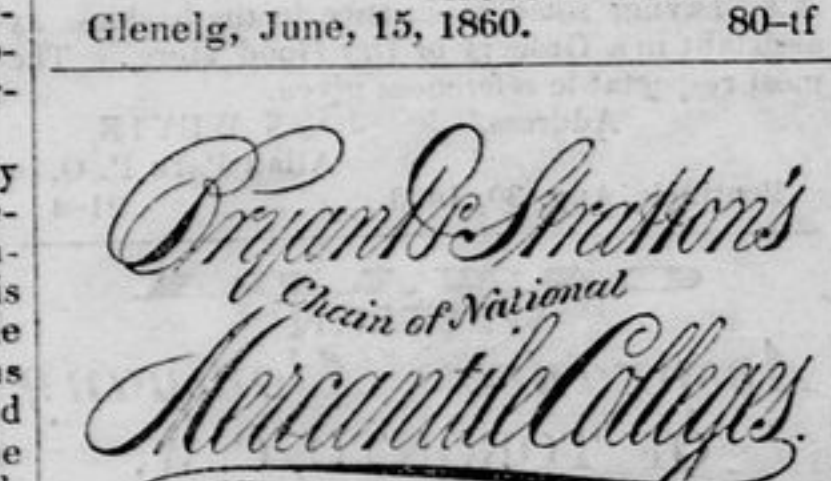 Glenelg, June, 15, 1860. 80-tf
Bryant & Stratton's
Chain of National
Mercantile Colleges.